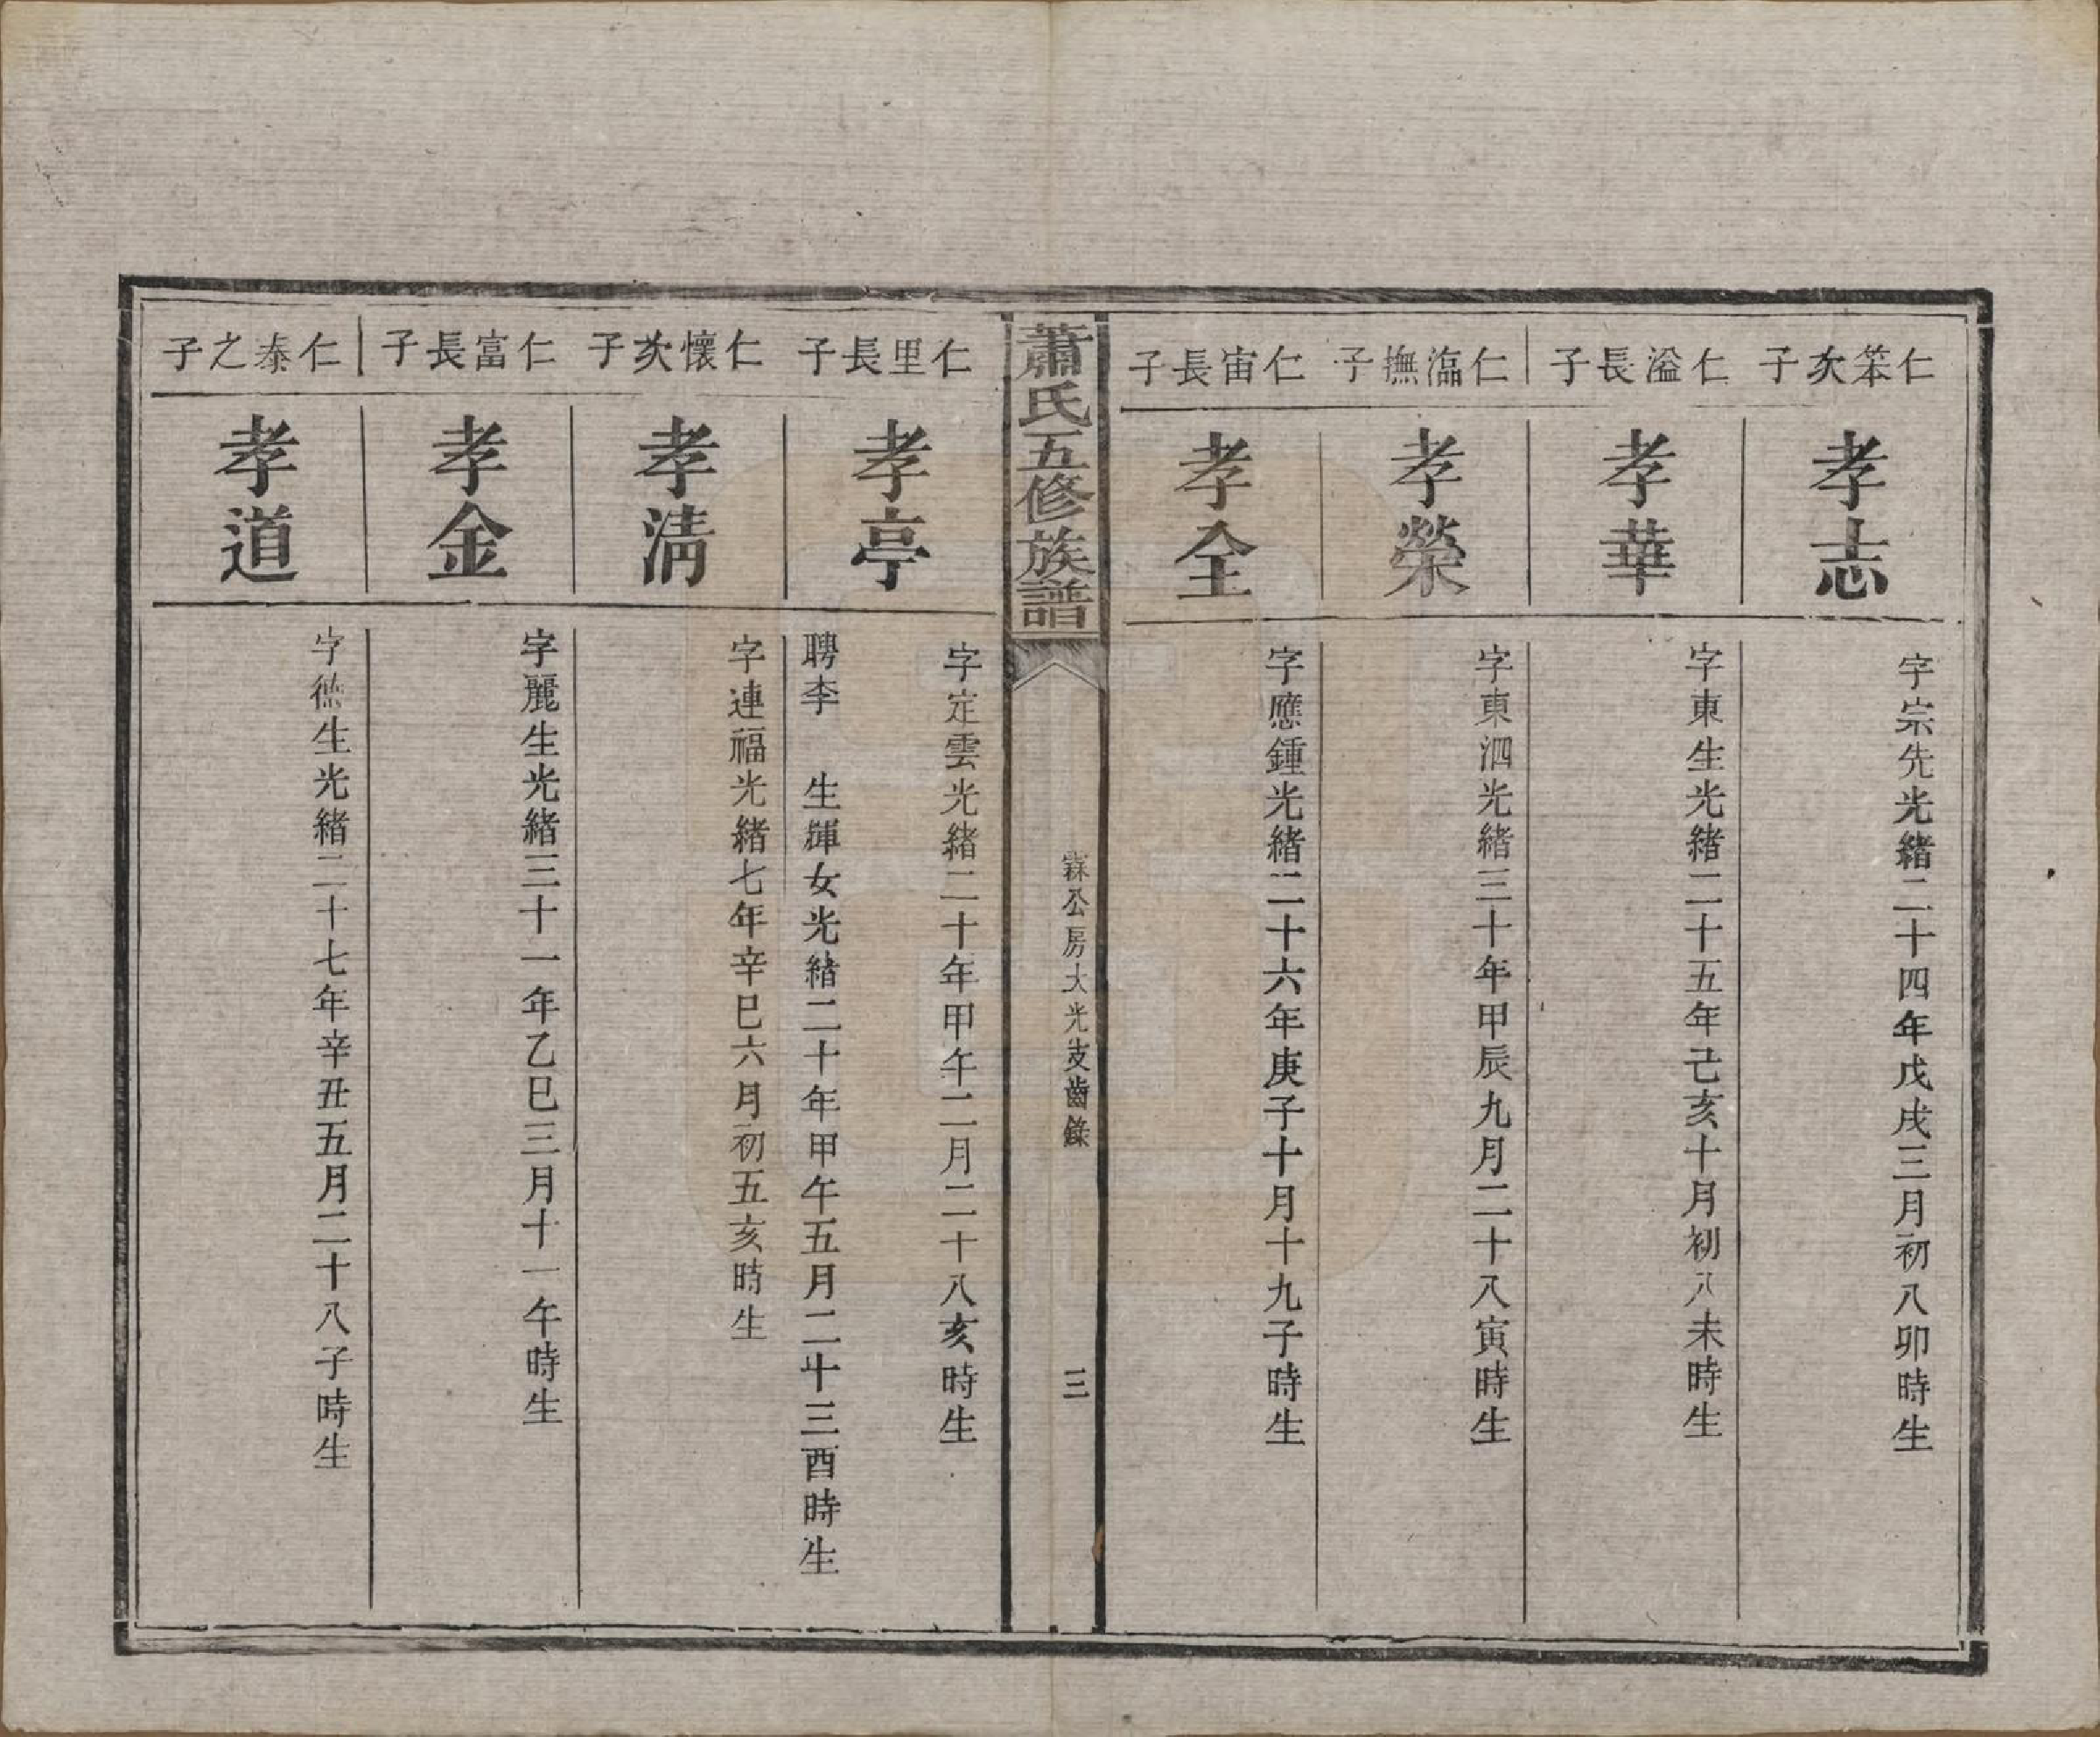 仁笨次子
孝志
字宗先光緒二十四年戊戌三月初八卯時生
仁溢長子
孝華
字東生光緒二十五年己亥十月初八未時生
仁溫撫子
孝榮
字東泗光緒三十年甲辰九月二十八寅時生
仁宙長子
孝全
字應鍾光緒二十六年庚子十月十九子時生
蕭氏五修族譜
霖公房大光支齒錄
三
仁里長子
孝亭
字定雲光緒二十年甲午二月二十八亥時生
聘李 生輝女光緒二十年甲午五月二十三酉時生
仁懷次子
孝清
字連福光緒七年辛巳六月初五亥時生
仁富長子
孝金
字麗生光緒三十一年乙巳三月十一午時生
仁泰之子
孝道
字德生光緒二十七年辛丑五月二十八子時生